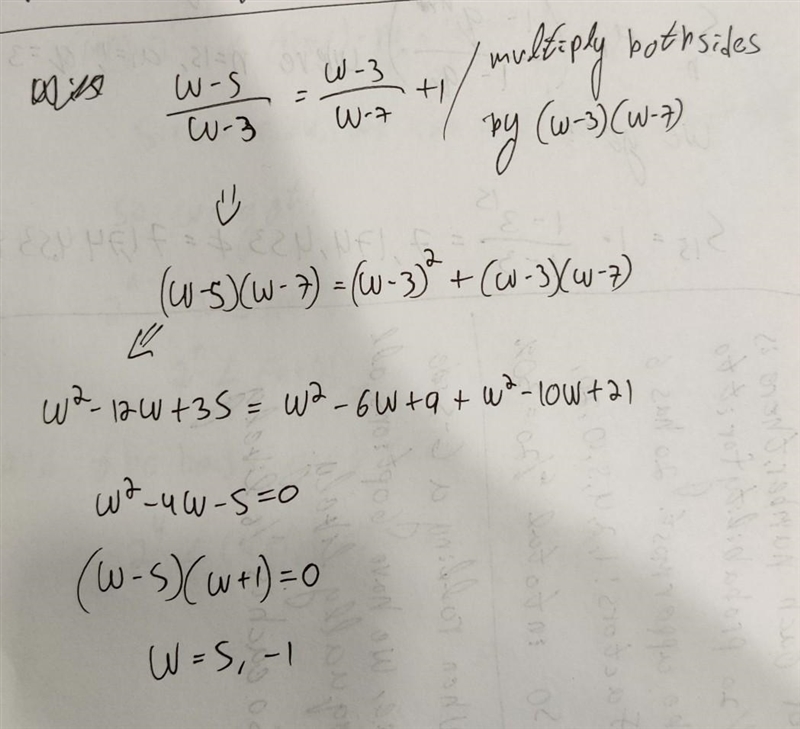 (w-5)/(w-3) = (w-3)/(w-7) + 1 / multiply both sides
by (w-3)(w-7)
⇓
(w-5)(w-7) = (w-3)² + (w-3)(w-7)
⇙
w² - 12w + 35 = w² - 6w + 9 + w² - 10w + 21
w² - 4w - 5 = 0
(w-5)(w+1) = 0
w = 5, -1